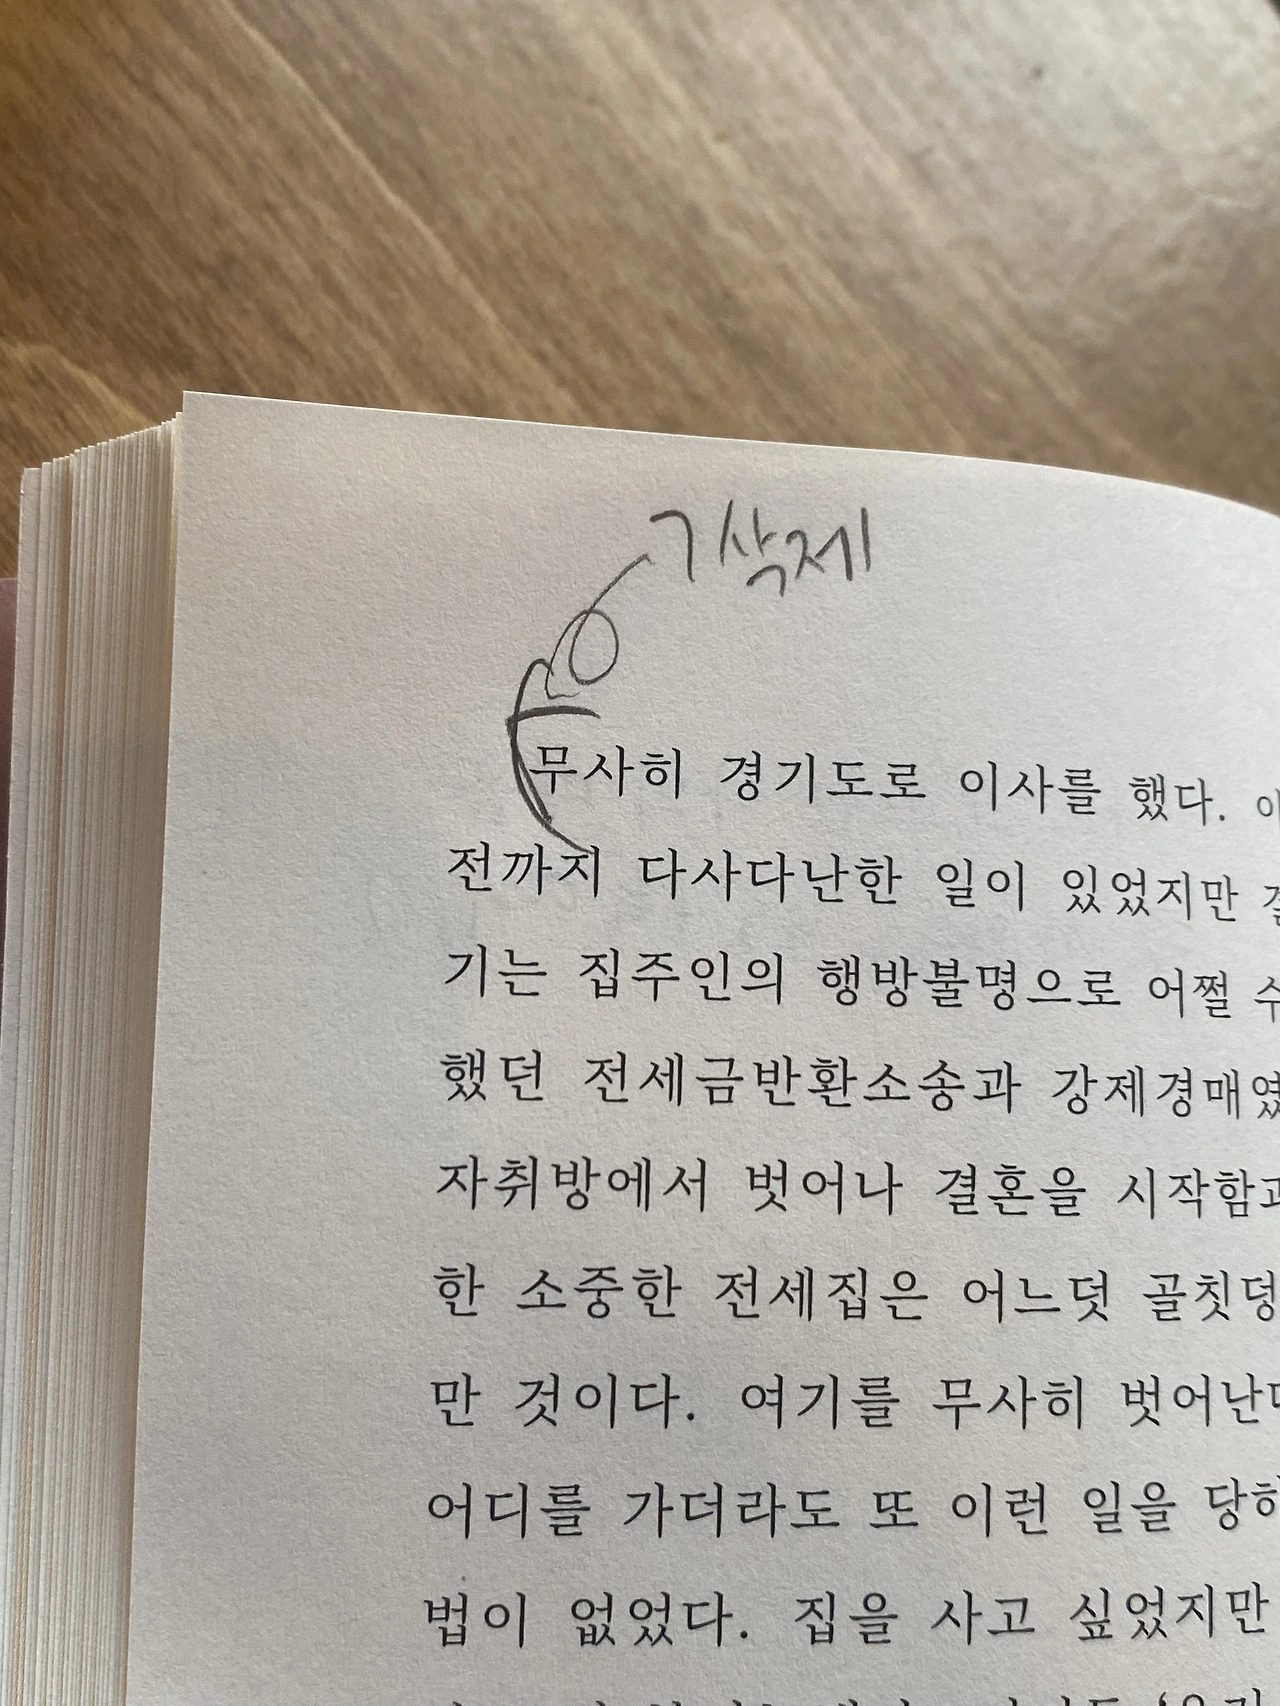 ㄱ삭제
무사히 경기도로 이사를 했다.
전까지 다사다난한 일이 있었지만
기는 집주인의 행방불명으로 어쩔 수
했던 전세금반환소송과 강제경매였
자취방에서 벗어나 결혼을 시작함과
한 소중한 전세집은 어느덧 골칫덩
만 것이다. 여기를 무사히 벗어난다
어디를 가더라도 또 이런 일을 당하
법이 없었다. 집을 사고 싶었지만